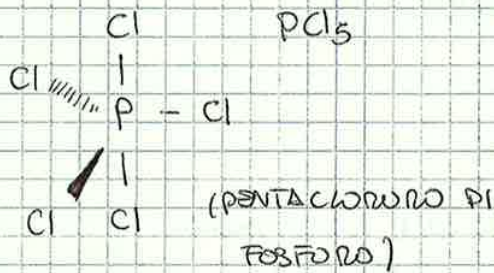 Cl PCl5
Cl
P - Cl
Cl Cl
(PENTACLORURO DI
FOSFORO)